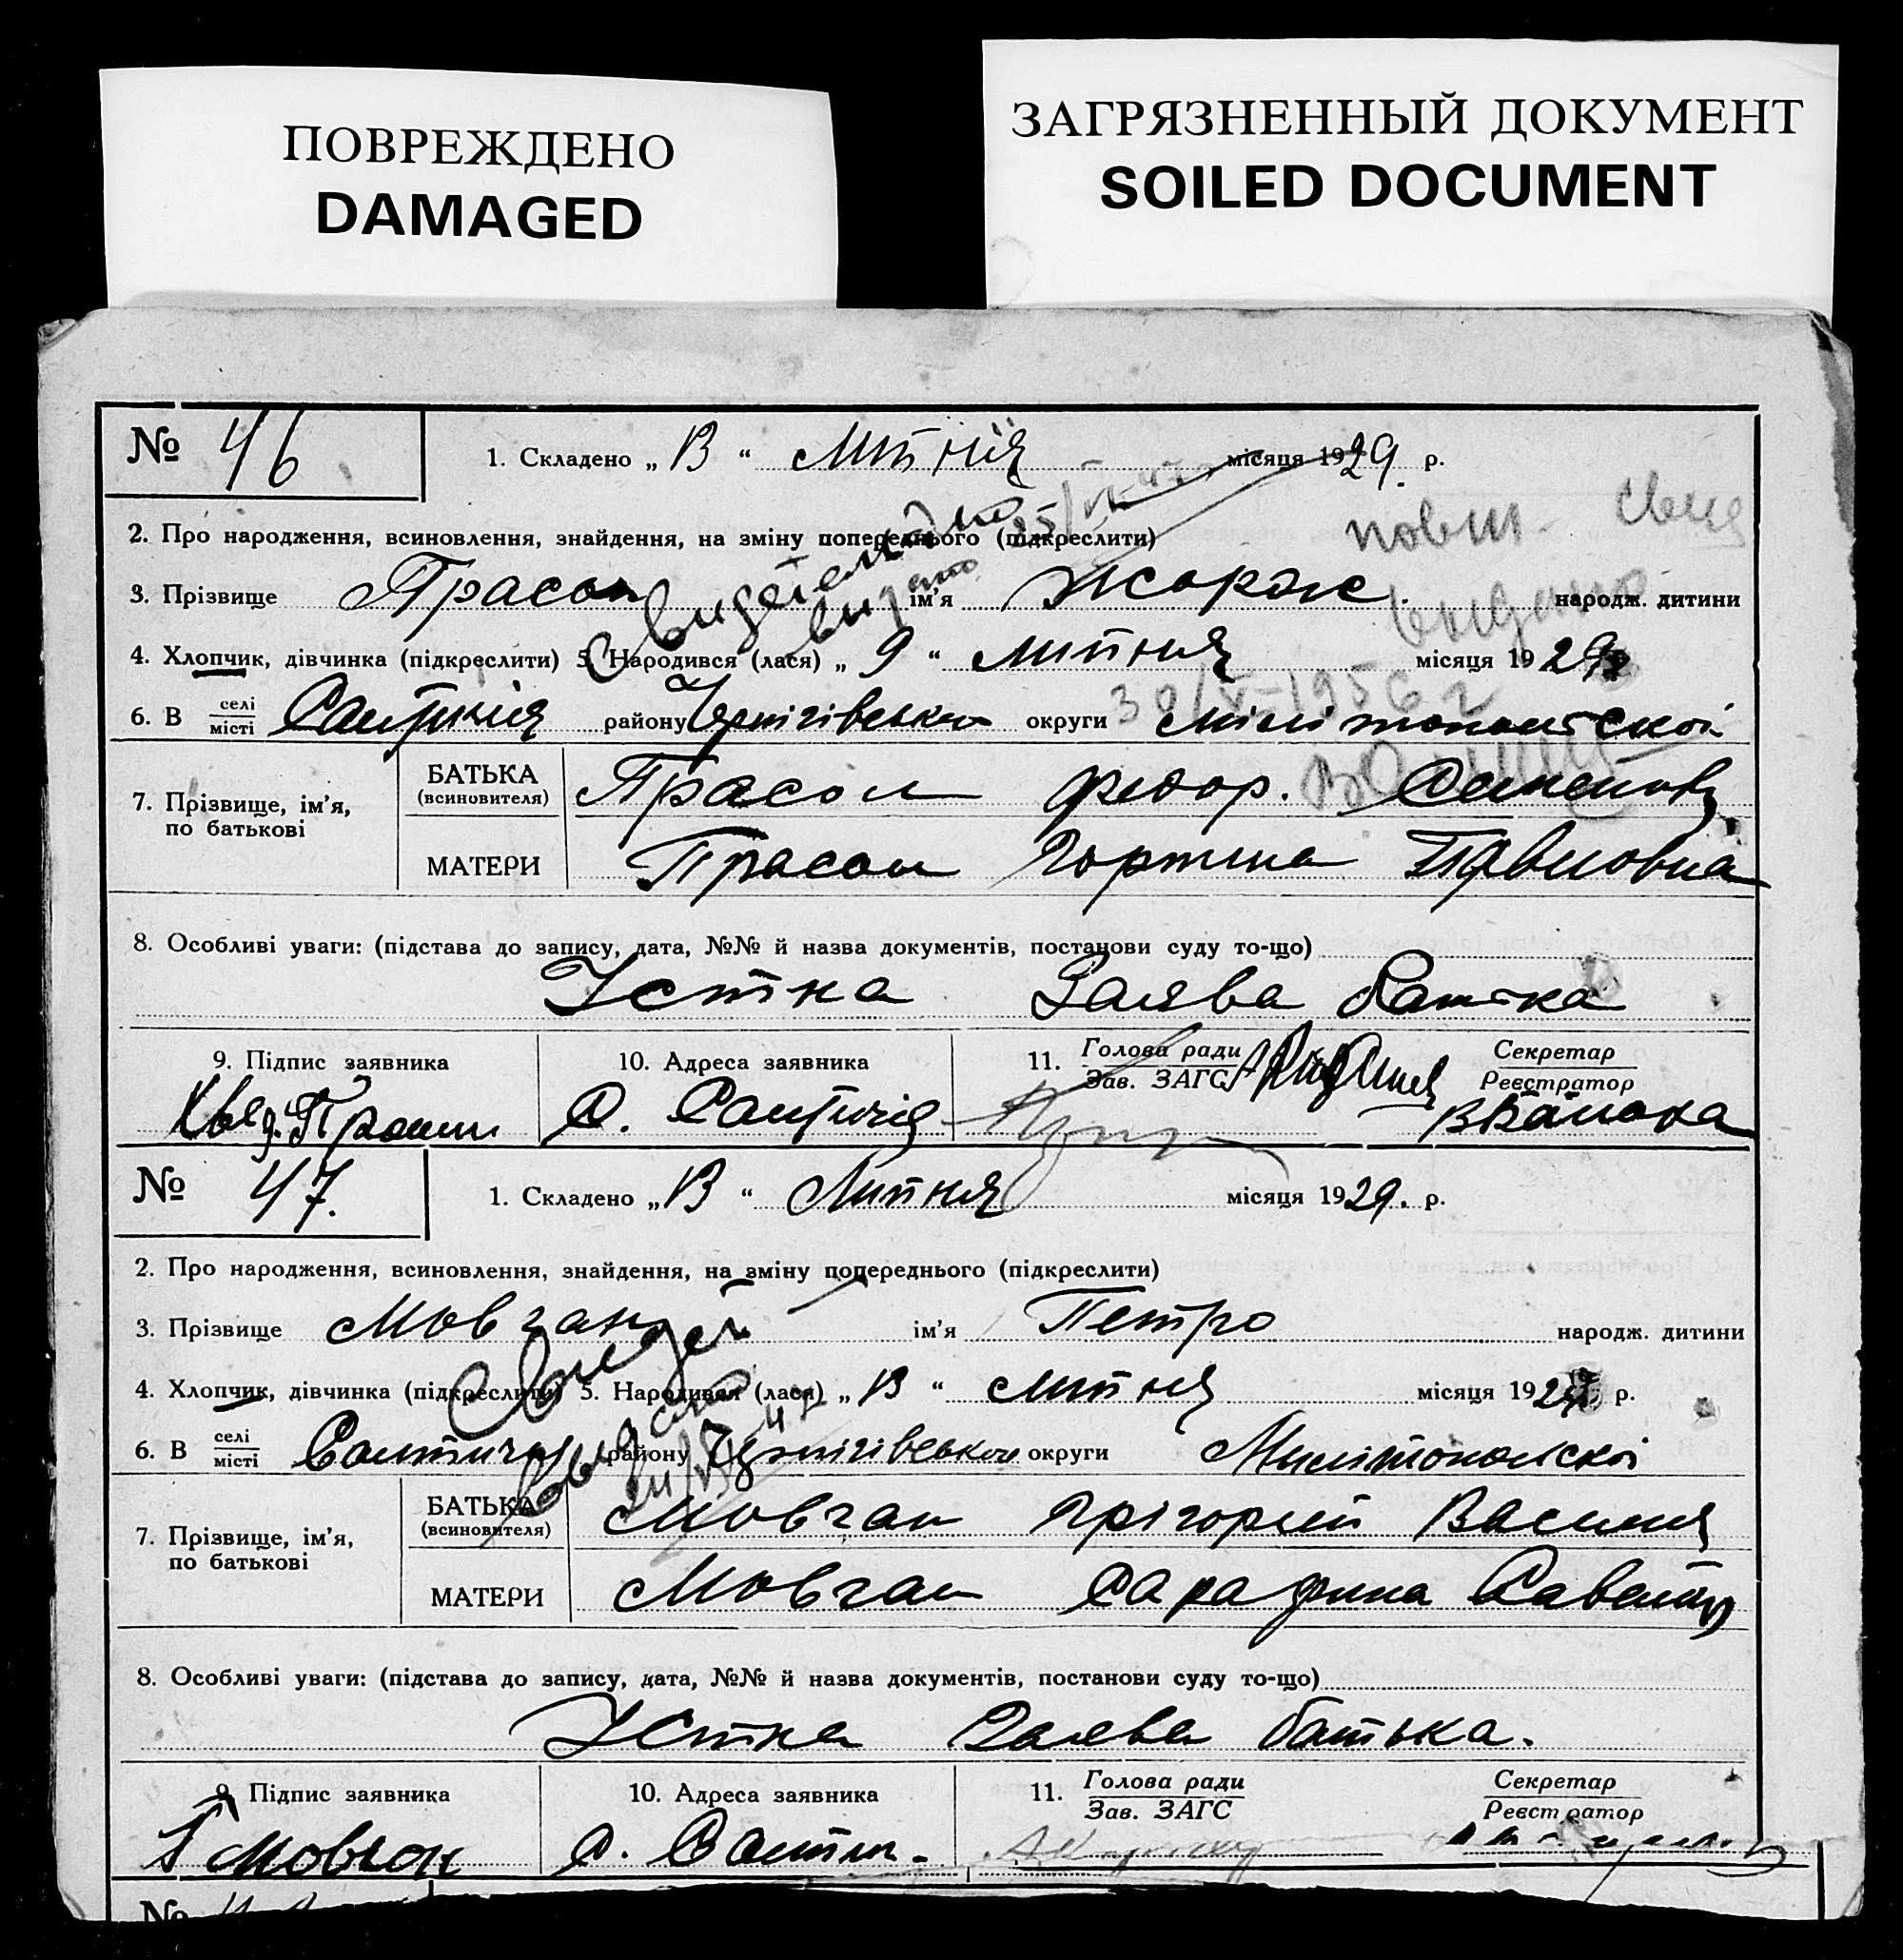 ПОВРЕЖДЕНО
DAMAGED
ЗАГРЯЗНЕННЫЙ ДОКУМЕНТ
SOILED DOCUMENT
№ 46
1. Складено „ 13 “ Липня місяця 1929. р.
2. Про народження, всиновлення, знайдення, на зміну попереднього (підкреслити)
повт. свид
3. Прізвище Прасол ім’я Жорж. народж. дитини
Свидетельство выдано
выдано
4. Хлопчик, дівчинка (підкреслити) 5. Народився (лася) „ 9 “ липня місяця 1929
30/V-1956 г
6. В селі/місті Салтичія району Чернігівського округи Мелітопольскоі
7. Прізвище, ім’я, по батькові
БАТЬКА (всиновителя) Прасол Федор. Семенов
МАТЕРИ Прасол Горпина Павловна
8. Особливі уваги: (підстава до запису, дата, №№ й назва документів, постанови суду то-що)
Устна Заява батька
9. Підпис заявника 10. Адреса заявника 11. Голова ради/Зав. ЗАГС Секретар/Реєстратор
С. Салтичія
№ 47.
1. Складено „ 13 “ Липня місяця 1929. р.
2. Про народження, всиновлення, знайдення, на зміну попереднього (підкреслити)
3. Прізвище Мовчан ім’я Петро народж. дитини
Свидет
выдано
4. Хлопчик, дівчинка (підкреслити) 5. Народився (лася) „ 13 “ липня місяця 1929 р.
6. В селі/місті Салтичія району Чернігівського округи Мелітопольскоі
7. Прізвище, ім’я, по батькові
БАТЬКА (всиновителя) Мовчан Грігорий Василия
МАТЕРИ Мовчан
8. Особливі уваги: (підстава до запису, дата, №№ й назва документів, постанови суду то-що)
Устна Заява батька.
9. Підпис заявника 10. Адреса заявника 11. Голова ради/Зав. ЗАГС Секретар/Реєстратор
Мовчан С. Салтич.
№